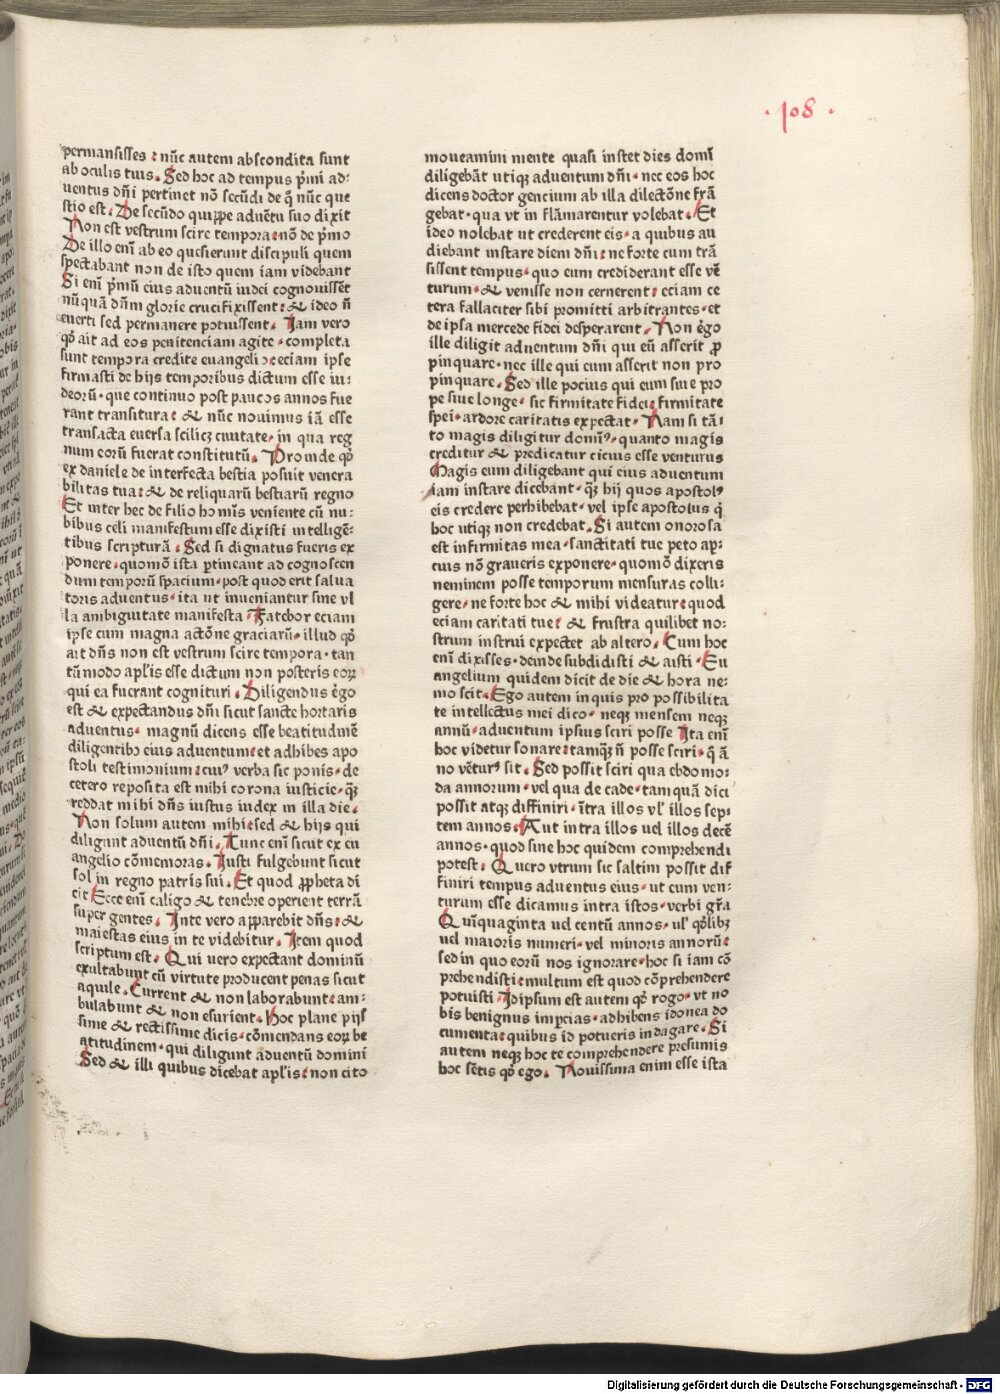 ·108·
permansisses : nūc autem abscondita sunt
ab oculis tuis. Sed hoc ad tempus pͥmi ad⸗
uentus dn̄i pertinet nō secūdi de q̄ nūc que
stio est. De secūdo quippe aduētu suo dixit
Non est vestrum scire tempora: nō de pͥmo
De illo enī ab eo quesierunt discipuli quem
spectabant non de isto quem iam videbant
Si enī pͥmū eius aduentū iudei cognouissēt
nūquā dn̄m glorie crucifixissent: & ideo n̄
euerti sed permanere potuissent. Iam vero
qd̓ ait ad eos penitenciam agite · completa
sunt tempora credite euangelio: eciam ipse
firmasti de hijs temporibus dictum esse iu⸗
deorū · que continuo post paucos annos fue
rant transitura: & nūc nouimus iā esse
transacta euersa scilicꝫ ciuitate · in qua reg
num eorū fuerat constitutū. Proinde qd̓
ex daniele de interfecta bestia posuit venera
bilitas tua: & de reliquarū bestiarū regno
Et inter hec de filio hominis veniente cū nu⸗
bibus celi manifestum esse dixisti intelligē⸗
tibus scripturā. Sed si dignatus fueris ex
ponere · quomō ista ꝑtineant ad cognoscen
dum temporū spacium · post quod erit salua
toris aduentus · ita ut inueniantur sine vl
la ambiguitate manifesta · Fatebor eciam
ipse cum magna actōne graciarū · illud qd̓
ait dn̄s non est vestrum scire tempora · tan
tū modo apl̄is esse dictum non posteris eoꝝ
qui ea fuerant cognituri. Diligendus ērgo
est & expectandus dn̄i sicut sancte hortaris
aduentus · magnū dicens esse beatitudinē
diligentibꝯ eius aduentum: et adhibes apo
stoli testimonium: cuiꝰ verba sic ponis · de
cetero reposita est mihi corona iusticie · qꝫ
reddat mihi dn̄s iustus iudex in illa die.
Non solum autem mihi: sed & hijs qui
diligunt aduentū dn̄i. Tunc enī sicut ex eu
angelio cōmemoras. Iusti fulgebunt sicut
sol in regno patris sui. Et quod ꝓpheta di
cit Ecce enī caligo & tenebre operient terrā
super gentes. Inte vero apparebit dn̄s: &
maiestas eius in te videbitur. Item quod
scriptum est. Qui uero expectant dominū
exultabunt cū virtute producent penas sicut
aquile. Current & non laborabunt: am⸗
bulabunt & non esurient. Hoc plane pijs
sime & rectissime dicis · cōmendans eoꝝ be
atitudinem · qui diligunt aduentū domini
Sed & illi quibus dicebat apl̄is: non cito
moueamini mente quasi instet dies domī
diligebāt utiqꝫ aduentum dn̄i · nec eos hoc
dicens doctor gencium ab illa dilectōne frā
gebat · qua vt in flāmarentur volebat. Et
ideo nolebat ut crederent eis · a quibus au
diebant instare diem dn̄i: ne forte cum trā
sissent tempus · quo eum crediderant esse vē
turum · & venisse non cernerent: eciam ce
tera fallaciter sibi promitti arbitrantes · et
de ipsa mercede fidei desperarent. Non ērgo
ille diligit aduentum dn̄i qui eū asserit ꝓ
pinquare · nec ille qui eum asserit non pro
pinquare. Sed ille pocius qui eum siue pro
pe siue longe · sic firmitate fidei: firmitate
spei · ardore caritatis expectat · Nam si tā⸗
to magis diligitur domīꝰ · quanto magis
creditur & predicatur cicius esse venturus
Magis eum diligebant qui eius aduentum
iam instare dicebant · qꝫ hij quos apostolꝰ
eis credere perhibebat · vel ipse apostolus q̄
hoc utiqꝫ non credebat. Si autem onorosa
est infirmitas mea · sanctitati tue peto ap⸗
cius nō graueris exponere · quomō dixeris
neminem posse temporum mensuras colli⸗
gere · ne forte hoc & mihi videatur: quod
eciam caritati tue: & frustra quilibet no⸗
strum instrui expectet ab altero. Cum hoc
enī dixisses · deinde subdidisti & aisti · Eu
angelium quidem dicit de die & hora ne⸗
mo scit. Ego autem inquis pro possibilita
te intellectus mei dico · neqꝫ mensem neqꝫ
annū · aduentum ipsius sciri posse Ita enī
hoc videtur sonare: tamqꝫ n̄ posse sciri · q̄ ā
no vēturꝰ sit. Sed possit sciri qua ebdomo⸗
da annorum · vel qua de cade · tamquā dici
possit atqꝫ diffiniri · īntra illos vl̓ illos sep⸗
tem annos: Aut intra illos uel illos decē
annos · quod sine hoc quidem comprehendi
potest: Quero vtrum sic saltim possit dif
finiri tempus aduentus eius · ut eum ven⸗
turum esse dicamus intra istos · verbi gr̄a
Quīquaginta uel centū annos · ul̓ qd̓libꝫ
uel maioris numeri · vel minoris annorū:
sed in quo eorū nos ignorare · hoc si iam cō
prehendisti: multum est quod cōprehendere
potuisti Id ipsum est autem qd̓ rogo · vt no
bis benignus imꝑcias · adhibens idonea do
cumenta: quibus id potueris indagare. Si
autem neqꝫ hoc te comprehendere presumis
hoc sētis qd̓ ego. Nouissima enim esse ista
Digitalisierung gefördert durch die Deutsche Forschungsgemeinschaft - DFG